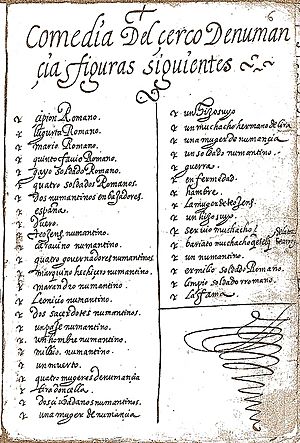 6
Comedia Del cerco Denuman
çia figuras siguientes
cipion Romano.
Jugurta Romano.
mario Romano.
quinto fauio Romano.
gayo soldado Romano.
quatro soldados Romanos.
dos numantinos enbaxadores.
españa.
duero.
teojenes numantino.
carauino numantino.
quatro gouernadores numantinos
marquino hechizero numantino.
marandro numantino.
Leonicio numantino.
dos sacerdotes numantinos.
un paje numantino.
un hombre numantino.
milbio. numantino.
un muerto.
quatro mugeres de numançia
lira donçella.
dos ciudadanos numantinos.
una muger de numançia
un hijo suyo
un muchacho hermano de lira
una muger de numançia
un soldado numantino.
guerra.
enfermedad.
hambre.
La muger de teojenes.
un hijo suyo.
seruio muchacho
bariato muchacho
un numantino.
ermilio soldado Romano.
limpio soldado rromano.
La fama